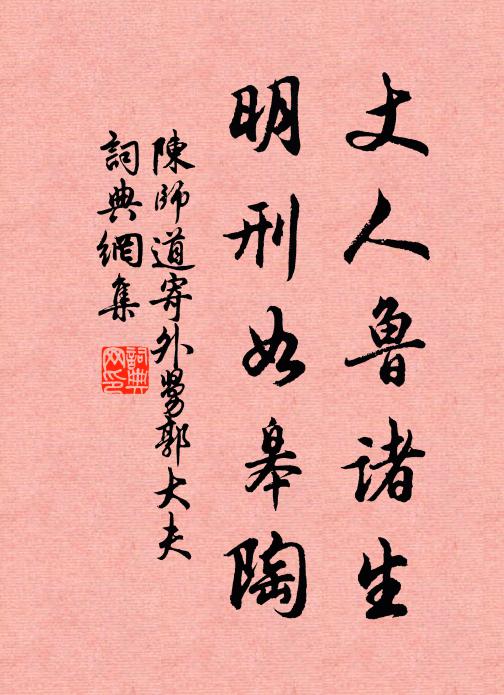 丈人鲁诸生
明刑如皋陶
陳師道寄外舅郭大夫
詞典網集
詞典网印